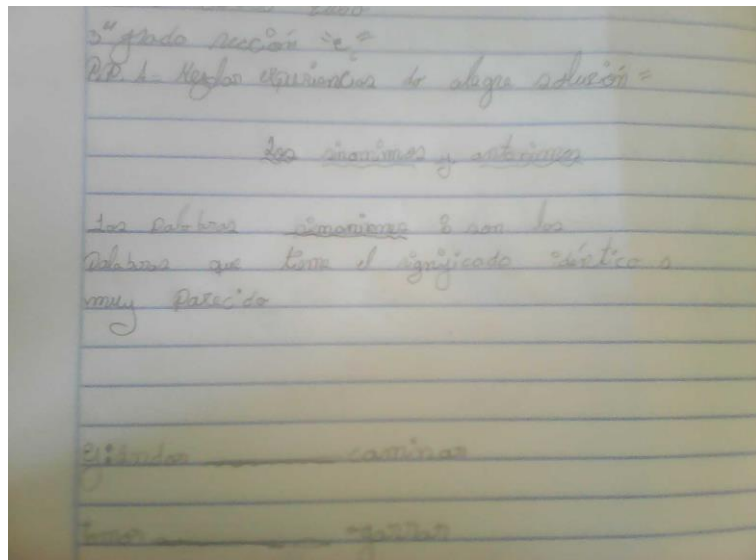 3" grado sección "e"
P.P. 1- experiencias de alegre solución=
Los sinonimos y antonimos
Las Palabras simonionos : son las
Palabras que tiene el significado idéntico o
muy Parecido
andar ———— caminar
tomar ———— agarrar